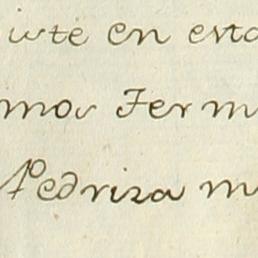 iste en esta
mos Fer m
Pedriza m